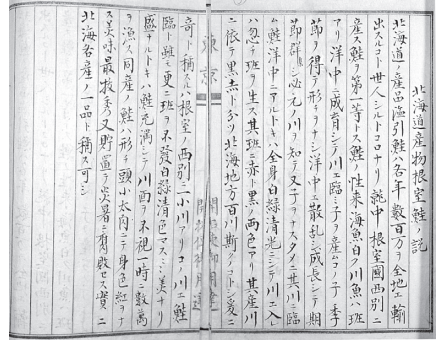 北海道産物根室鮭ノ説
北海道一産品塩引鮭ハ各年数百万ヲ全地エ輸
出スルコト世人シルトコロナリ就中根室國西別ニ
産ス鮭ヲ第一等トス鮭ノ性来海魚白ク川魚ハ班
アリ洋中ニ成育シテ川エ臨ミ子ヲ産ムコノ子季
節ヲ得テ形ヲナシ洋中エ散乱シ成長シテ期
節群シ必元ノ川ヲ知テ又子ヲナスタメニ其川エ臨
ム鮭洋中ニアルトキハ全身白緑清光ニシテ川エ入レ
ハ忽チ班ヲ生ス其班ニ赤ト黒ノ両色アリ其産川
ニ依テ黒赤ト分ツ北海地方百川斯クノコトシ爰ニ
奇ト稱スルハ根室ノ西別ニ小川アリコノ川エ鮭
臨ト雖モ更ニ班ヲ不發白緑清色マスマスミ美ナリ
盛ナルトキハ鮭充満シテ川面ヲ不視一時ニ数萬
ヲ漁ス同産ノ鮭ハ形チ頭小太肉ニシテ身色紅ヲナ
ス美味最抜秀又貯置テ炎暑ニ腐敗セス實ニ
北海名産ノ一品ト稱スヘシ
東京